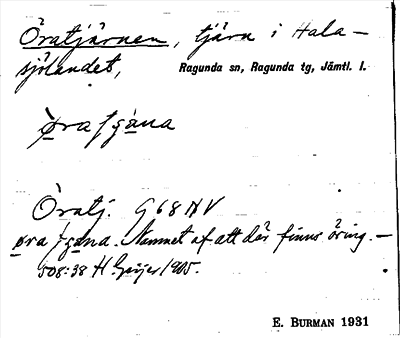 Öratjärnen, tjärn i Hala-
sjölandet,
Ragunda sn, Ragunda tg, Jämtl. l.
Öratj. G68NV
Namnet af att där finns öring. —
508:38 H. Geijer 1905.
E. BURMAN 1931